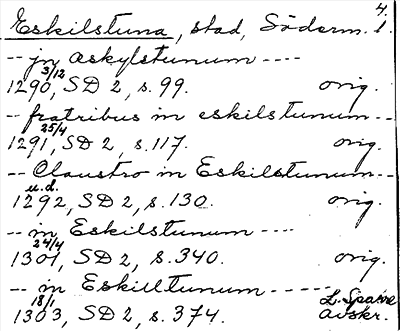 4.
Eskilstuna, stad, Söderm. l.
-- jn æskylstunum ----
1290 3/12, SD 2, s. 99. orig.
-- fratribus in eskilstunum --
1291 25/4, SD 2, s. 117. orig.
-- Claustro in Eskilstunum --
1292 u.d., SD 2, s. 130. orig.
-- in Eskilstunum ----
1301 24/4, SD 2, s. 340. orig.
-- in Eskilltunum -----
1303 18/1, SD 2, s. 374. L. Sparre avskr.